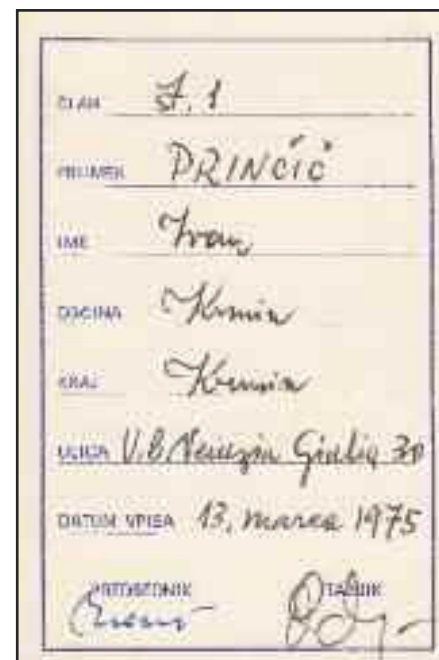 ČLAN Š. 1
PRIIMEK PRINČIČ
IME Ivan
OBČINA Krmin
KRAJ Krmin
ULICA V.le Venezia Giulia 30
DATUM VPISA 13. marca 1975
PREDSEDNIK TAJNIK